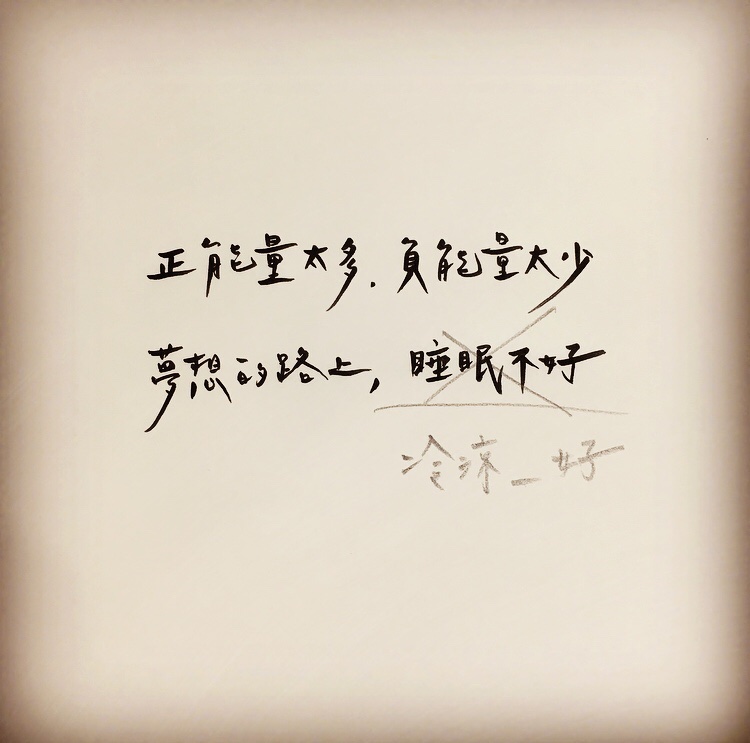 正能量太多.負能量太少
夢想的路上,睡眠不好
冷涼一好